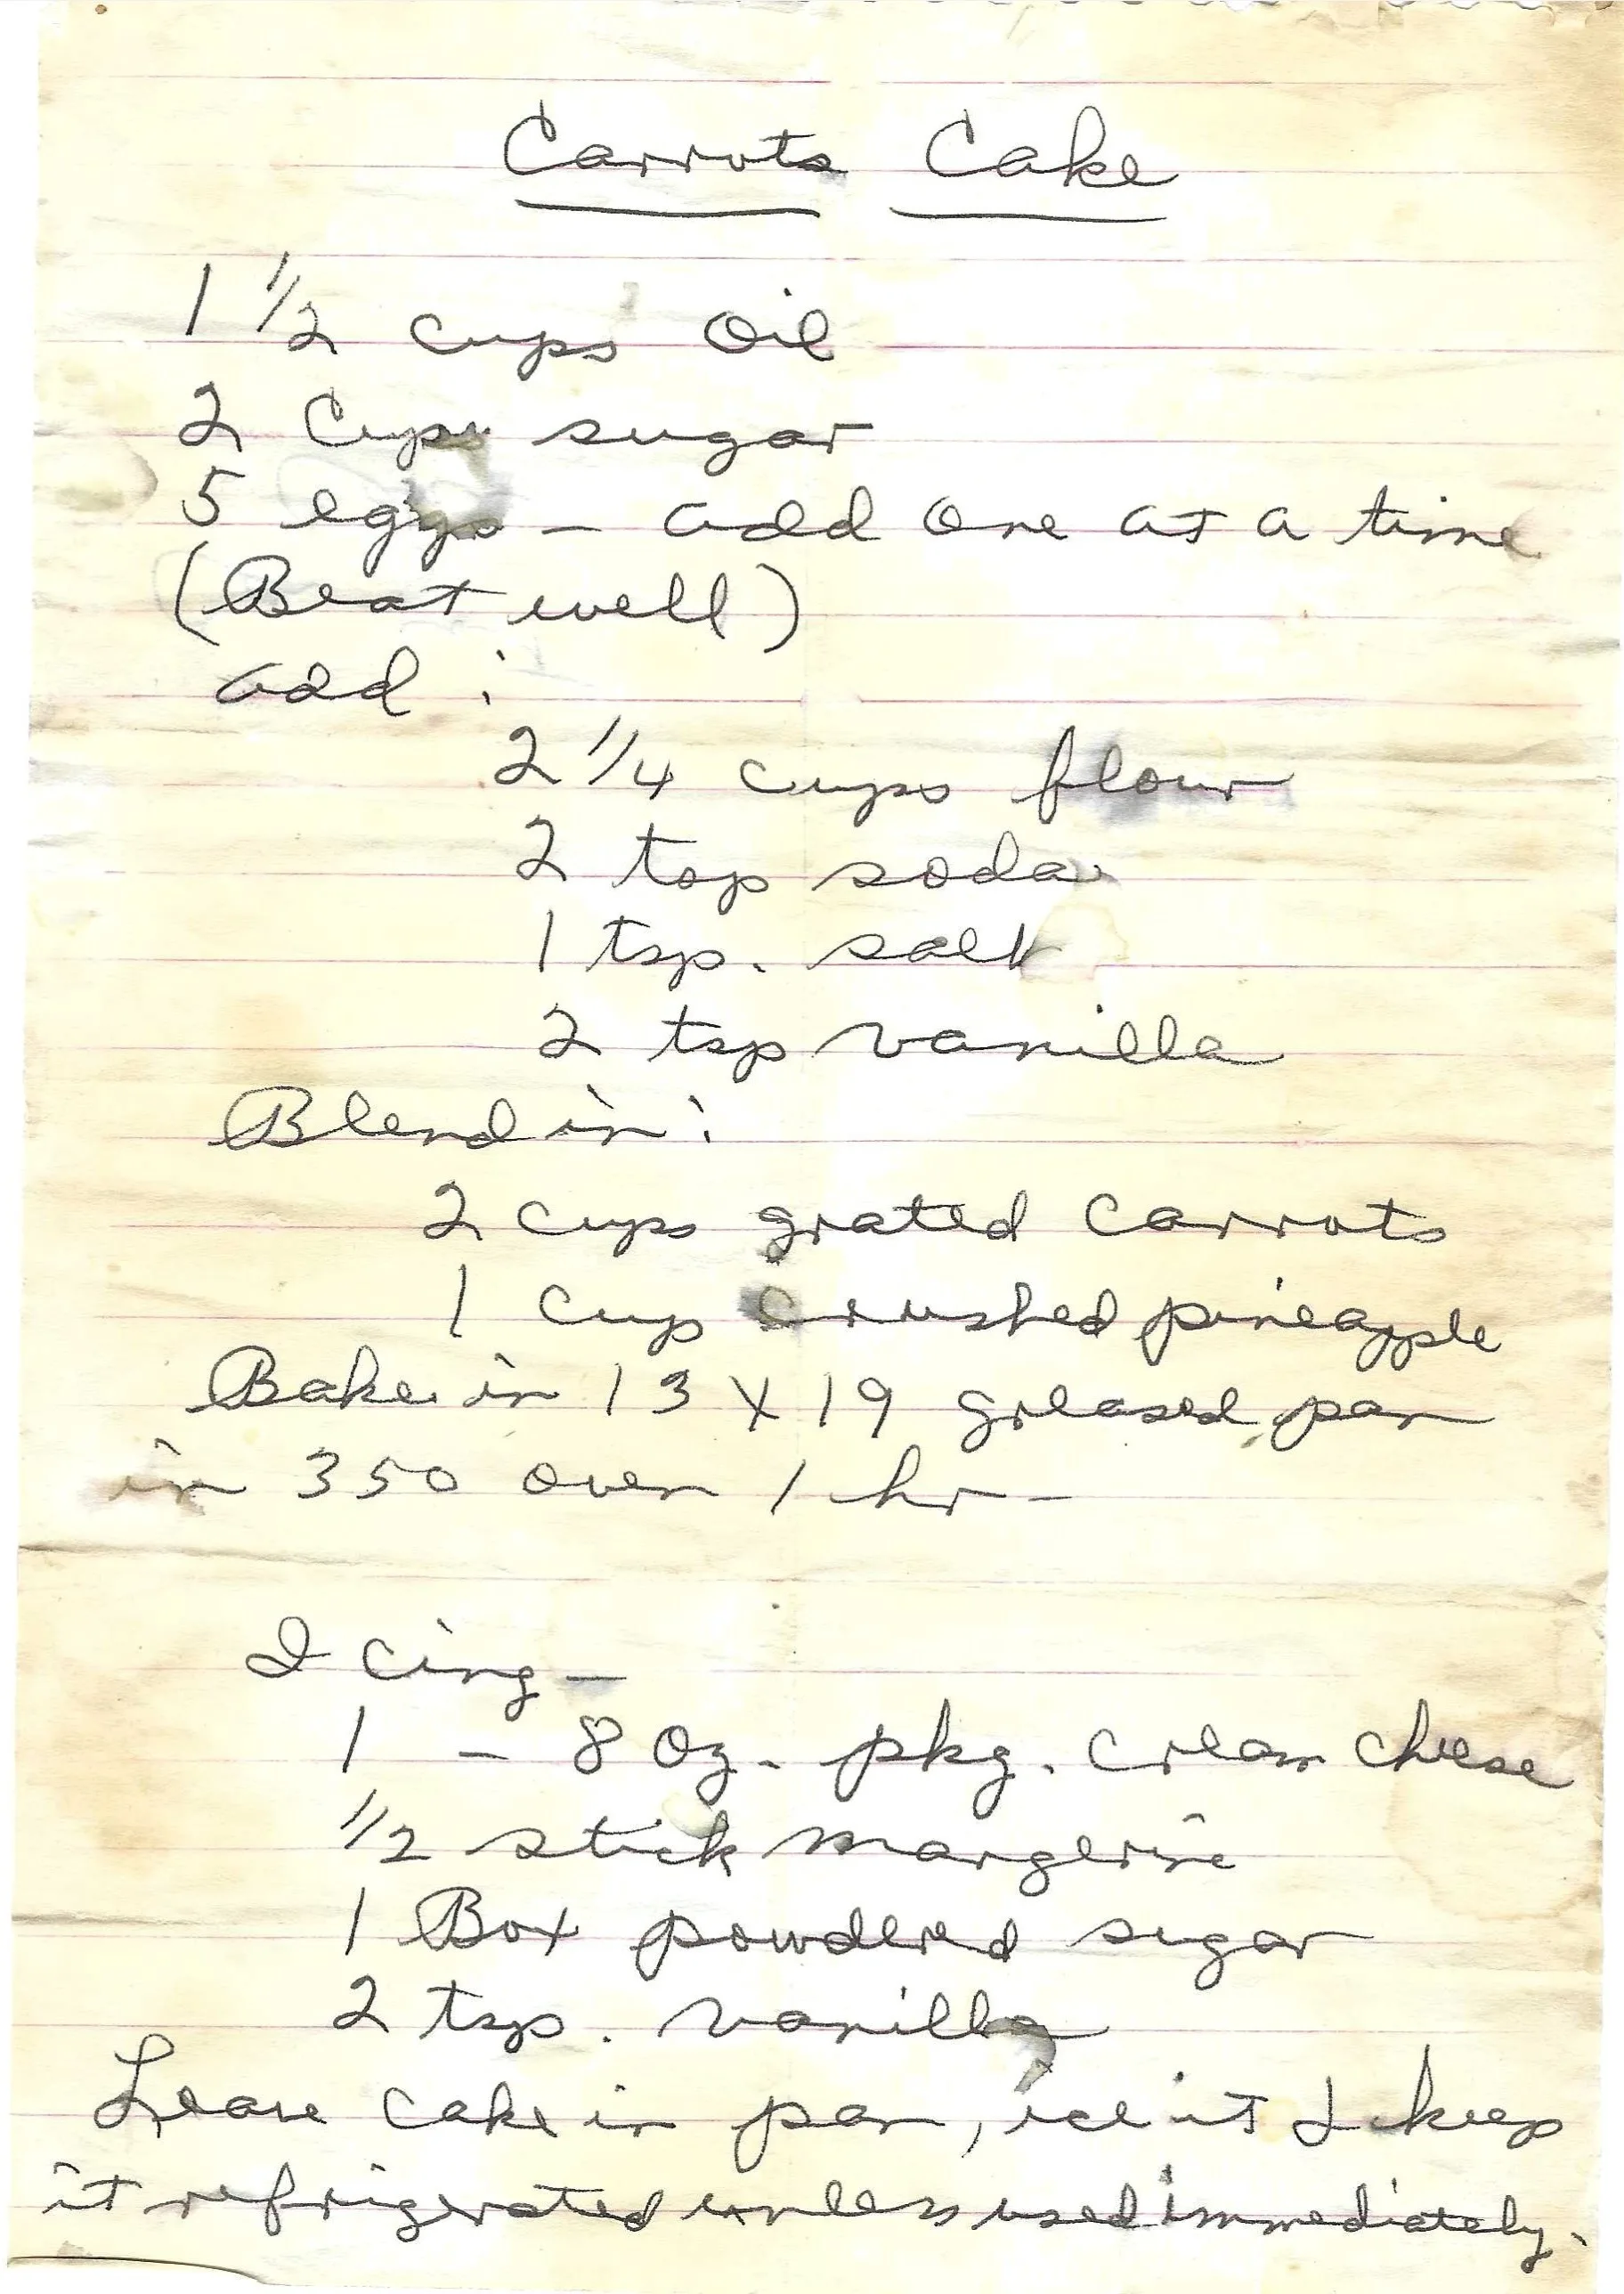 Carrots Cake
1 1/2 cups oil
2 Cups sugar
5 eggs - add one at a time
(Beat well)
add :
2 1/4 cups flour
2 tsp soda
1 tsp. salt
2 tsp vanilla
Blend in :
2 cups grated carrots
1 cup crushed pineapple
Bake in 13 X 19 greased pan
in 350 oven 1 hr -
Icing -
1 - 8 oz. pkg. cream cheese
1/2 stick margerine
1 Box powdered sugar
2 tsp. vanilla
Leave cake in pan, ice it & keep
it refrigerated unless used immediately.